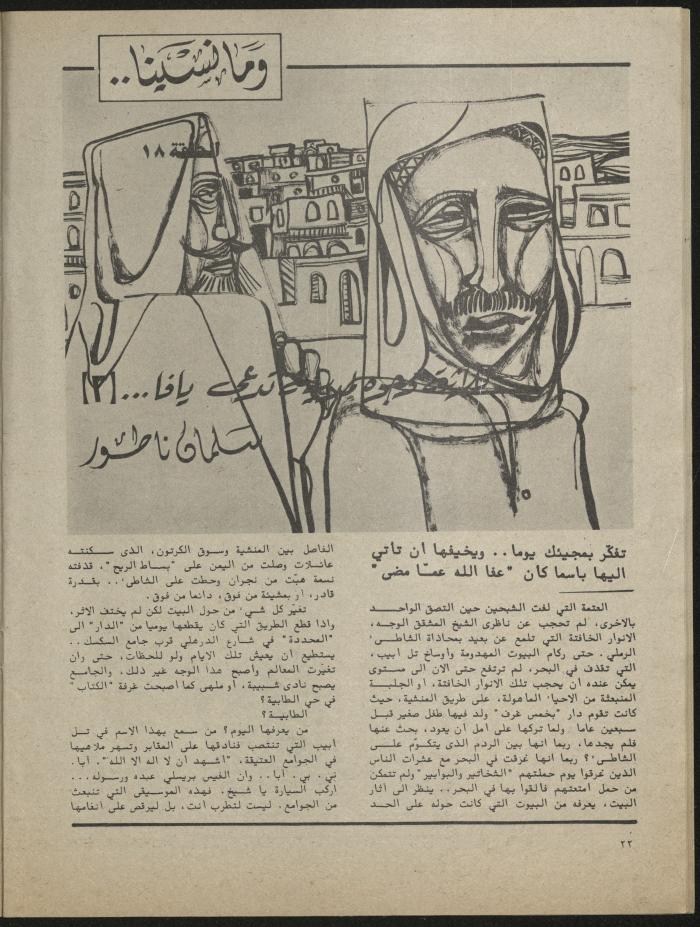 وَمَا نسَينا..
الحلقة ١٨
تدعى يافا...[٢]
سلمان ناطور
تفكّر بمجيئك يوما.. ويخيفها ان تاتي
اليها باسما كان "عفا الله عمّا مضى"
العتمة التي لفت الشبحين حين التصق الواحد
بالاخرى، لم تحجب عن ناظرى الشيخ المشقق الوجه،
الانوار الخافتة التي تلمع عن بعيد بمحاذاة الشاطىء
الرملي. حتى ركام البيوت المهدومة واوساخ تل ابيب،
التي تقذف في البحر، لم ترتفع حتى الان الى مستوى
يمكن عنده ان يحجب تلك الانوار الخافتة، او الجلبة
المنبعثة من الاحياء الماهولة، على طريق المنشية، حيث
كانت تقوم دار "بخمس غرف" ولد فيها طفل صغير قبل
سبعين عاما ولما تركها على امل ان يعود، بحث عنها
فلم يجدها، ربما انها بين الردم الذى يتكوّم على
الشاطىء؟ ربما انها غرقت في البحر مع عشرات الناس
الذين غرقوا يوم حملتهم "الشخاتير والبوابير" ولم تتمكن
من حمل امتعتهم فالقوا بها في البحر.. ينظر الى اثار
البيت، يعرفه من البيوت التي كانت حوله على الحد
الفاصل بين المنشية وسوق الكرتون، الذى سكنته
عائلات وصلت من اليمن على "بساط الريح"، قذفته
نسمة هبّت من نجران وحطت على الشاطىء.. بقدرة
قادر، او بمشيئة من فوق، دائما من فوق.
تغيّر كل شيء من حول البيت لكن لم يختف الاثر،
واذا قطع الطريق التي كان يقطعها يوميا من "الدار" الى
"المحددة" في شارع الدرهلي قرب جامع السكسك..
يستطيع ان يعيش تلك الايام ولو للحظات، حتى وان
تغيّرت المعالم واصبح هذا الوجه غير ذلك، والجامع
يصبح نادى شبيبة، او ملهى كما اصبحت غرفة "الكتاب"
في حي الطابية؟
الطابية؟
من يعرفها اليوم؟ من سمع بهذا الاسم في تل
ابيب التي تنتصب فنادقها على المقابر وتسهر ملاهيها
في الجوامع العتيقة، "اشهد ان لا اله الا الله". آبا.
ني. بي. آبا.. وان الفيس بريسلي عبده ورسوله...
اركب السيارة يا شيخ. فهذه الموسيقى التي تنبعث
من الجوامع. ليست لتطرب انت، بل ليرقص على انغامها
٢٢